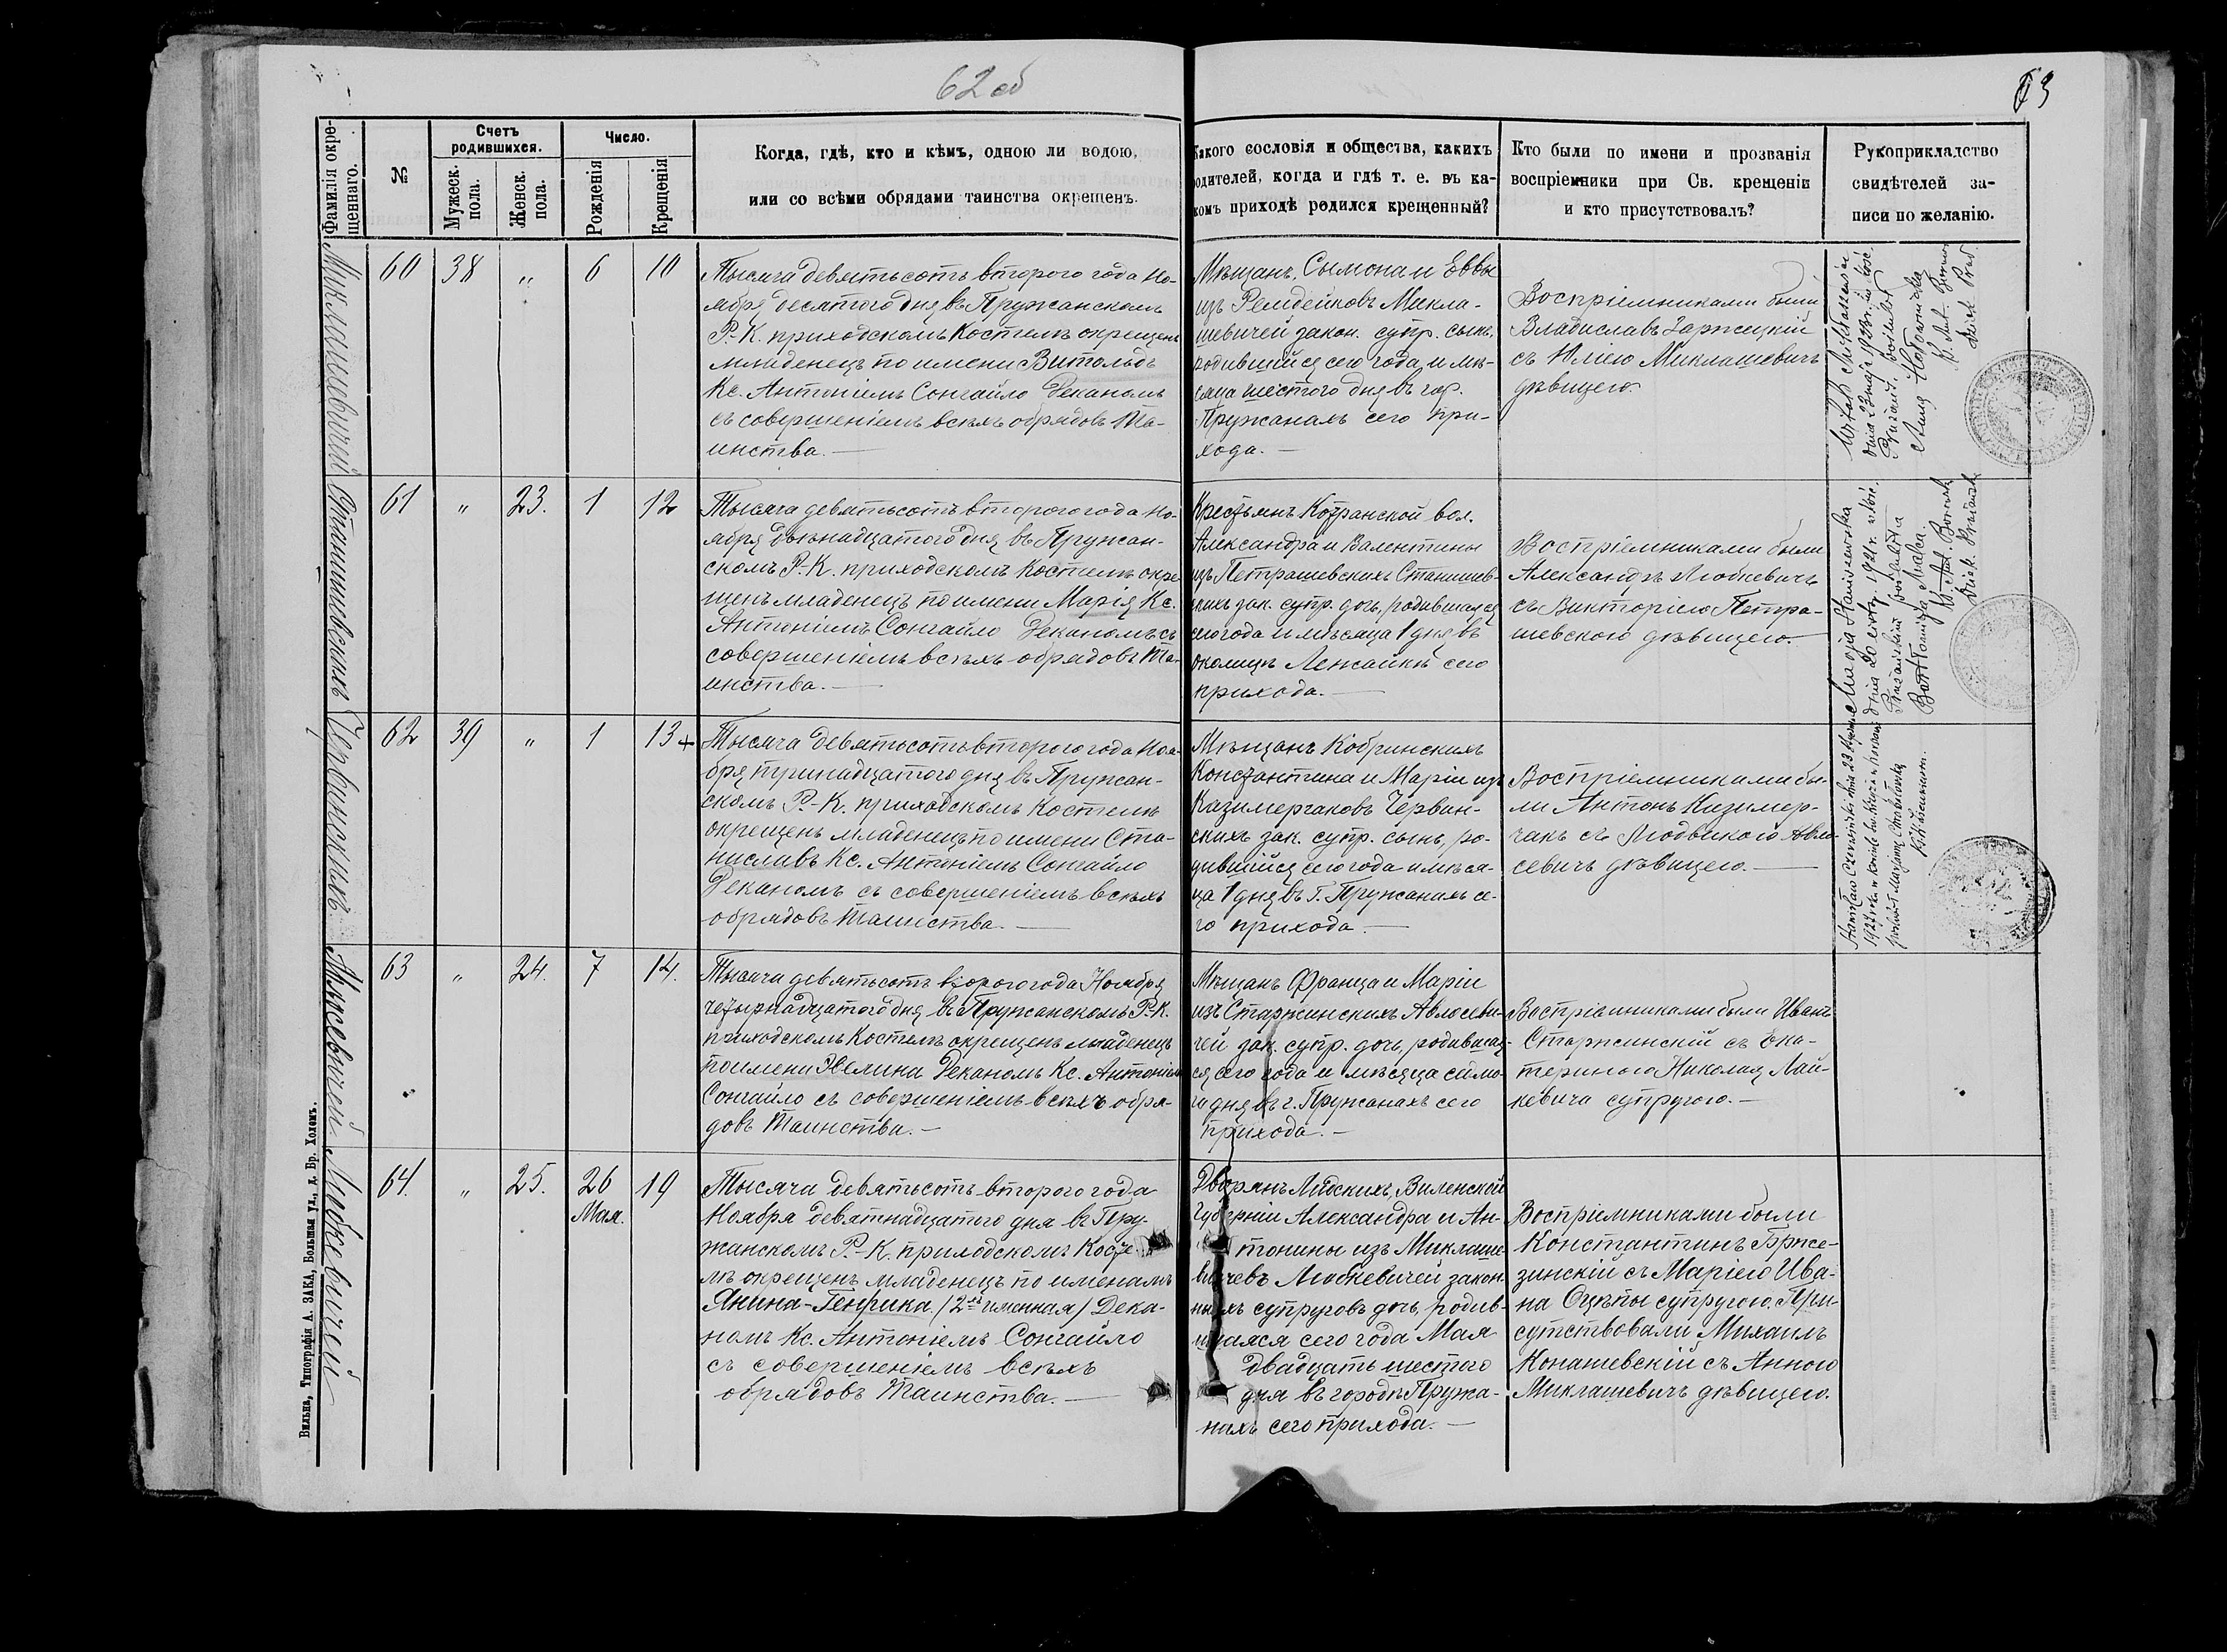 62 об
63
Фамилія окре-
щеннаго.
№
Счетъ
родившихся.
Мужеск.
пола.
Женск.
пола.
Число.
Рожденія
Крещенія
Когда, гдѣ, кто и кѣмъ, одною ли водою,
или со всѣми обрядами таинства окрещенъ.
Какого сословія и общества, какихъ
родителей, когда и гдѣ т. е. въ ка-
комъ приходѣ родился крещенный?
Кто были по имени и прозванія
воспріемники при Св. крещеніи
и кто присутствовалъ?
Рукоприкладство
свидѣтелей за-
писи по желанію.
Миклашевичей
60
38
„
6
10
Тысяча девятьсотъ второго года но-
ября десятого дня въ Пружанскомъ
Р.-К. приходскомъ Костелѣ окрещенъ
младенецъ по имени Витольдъ
Кс. Антоніемъ Сонгайло Деканомъ
съ совершеніемъ всѣхъ обрядовъ Та-
инства. —
Мѣщанъ, Сымона и Еввы
изъ Ремдейковъ Микла-
шевичей закон. супр. сынъ,
родившійся сего года и мѣ-
сяца шестого дня въ гор.
Пружанахъ сего при-
хода. —
Воспріемниками были
Владиславъ Заржецкій
съ Юліею Миклашевичъ
дѣвицею.
Станишевскихъ
61
„
23.
1
12
Тысяча девятьсотъ второго года но-
ября двѣнадцатого дня въ Пружан-
скомъ Р.-К. приходскомъ Костелѣ окре-
щенъ младенецъ по имени Марія Кс.
Антоніемъ Сонгайло Деканомъ съ
совершеніемъ всѣхъ обрядовъ Та-
инства. —
Крестьянъ Котранской вол.
Александра и Валентины
изъ Петрашевскихъ Станишев-
скихъ зак. супр. дочь, родившаяся
сего года и мѣсяца 1 дня въ
околицѣ Ленжайкѣ сего
прихода. —
Воспріемниками были
Александръ Любкевичъ
съ Викторіею Петра-
шевскою дѣвицею.
Червинскихъ
62
39
„
1
13 +
Тысяча девятьсотъ второго года ноя-
бря тринадцатого дня въ Пружан-
скомъ Р.-К. приходскомъ Костелѣ
окрещенъ младенецъ по имени Ста-
ниславъ Кс. Антоніемъ Сонгайло
Деканомъ съ совершеніемъ всѣхъ
обрядовъ Таинства. —
Мѣщанъ Кобринскихъ
Константина и Маріи изъ
Казимерчаковъ Червин-
скихъ зак. супр. сынъ, ро-
дившійся сего года и мѣся-
ца 1 дня въ г. Пружанахъ се-
го прихода. —
Воспріемниками бы-
ли Антонъ Казимер-
чакъ съ Людвикою Авло-
севичъ дѣвицею. —
63
„
24.
7
14.
Тысяча девятьсотъ второго года Ноября
четырнадцатого дня въ Пружанскомъ Р.-К.
приходскомъ Костелѣ окрещенъ младенецъ
по имени Хелина Деканомъ Кс. Антоніемъ
Сонгайло съ совершеніемъ всѣхъ обря-
довъ Таинства. —
Мѣщанъ Франца и Маріи
изъ Старжинскихъ Авлосеви-
чей зак. супр. дочь, родившая-
ся сего года и мѣсяца седьмо-
го дня въ г. Пружанахъ сего
прихода. —
Воспріемниками были Иванъ
Старжинскій съ Ека-
териною Николая Лай-
кевича супругою. —
Любкевичей
64.
„
25.
26
Мая.
19
Тысяча девятьсотъ второго года
Ноября девятнадцатого дня въ Пру-
жанскомъ Р.-К. приходскомъ Косте-
лѣ окрещенъ младенецъ по именамъ
Янина-Генрика (2хъ именная) Дека-
номъ Кс. Антоніемъ Сонгайло
съ совершеніемъ всѣхъ
обрядовъ Таинства. —
Дворянъ Лидскихъ, Виленской
Губерніи Александра и Ан-
тонины изъ Миклаше-
вичевъ Любкевичей закон-
ныхъ супруговъ дочь, родив-
шаяся сего года Мая
двадцать шестого
дня въ городѣ Пружа-
нахъ сего прихода. —
Воспріемниками были
Константинъ Брже-
зинскій съ Маріею Ива-
на Оцѣпы супругою. При-
сутствовали Михаилъ
Конашевскій съ Анною
Миклашевичъ дѣвицею.
Вильна, Типографія А. ЗАКА, Большая ул., д. Бр. Холемъ.